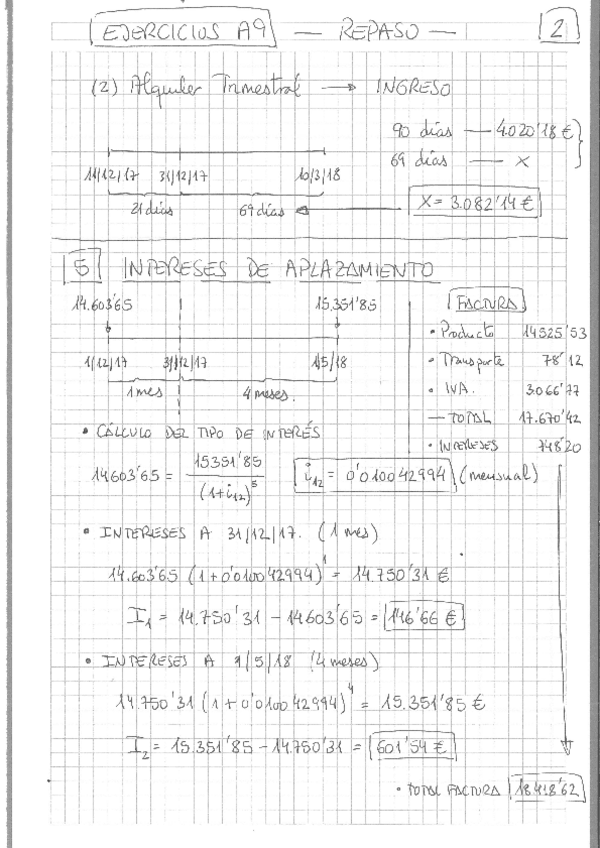 EJERCICIOS A9 — REPASO — 2
(2) Alquiler Trimestral → INGRESO
90 días — 4.020'18 €
69 días — x
11/12/17 31/12/17 10/3/18
21 días 69 días
X = 3.082'14 €
5 INTERESES DE APLAZAMIENTO
14.603'65 15.351'85
1/12/17 31/12/17 1/5/18
1 mes 4 meses.
FACTURA
• Producto 14525'53
• Transporte 78'12
• IVA. 3.066'77
— TOTAL 17.670'42
• INTERESES 748'20
• CÁLCULO DEL TIPO DE INTERÉS
14603'65 = 15351'85 / (1+i12)^5
i12 = 0'010042994 (mensual)
• INTERESES A 31/12/17. (1 mes)
14.603'65 (1+0'010042994)^1 = 14.750'31 €
I1 = 14.750'31 - 14603'65 = 146'66 €
• INTERESES A 1/5/18 (4 meses)
14.750'31 (1+0'010042994)^4 = 15.351'85 €
I2 = 15.351'85 - 14750'31 = 601'54 €
• TOTAL FACTURA 18.418'62